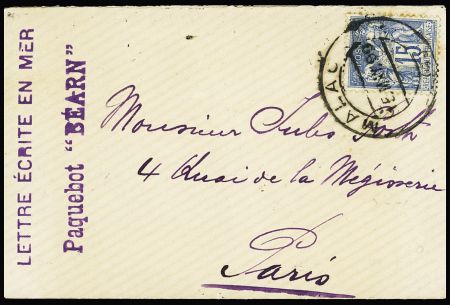 LETTRE ÉCRITE EN MER
Paquebot "BÉARN"
MALAG
15
Monsieur Jules
4 Quai de la Mégisserie
Paris